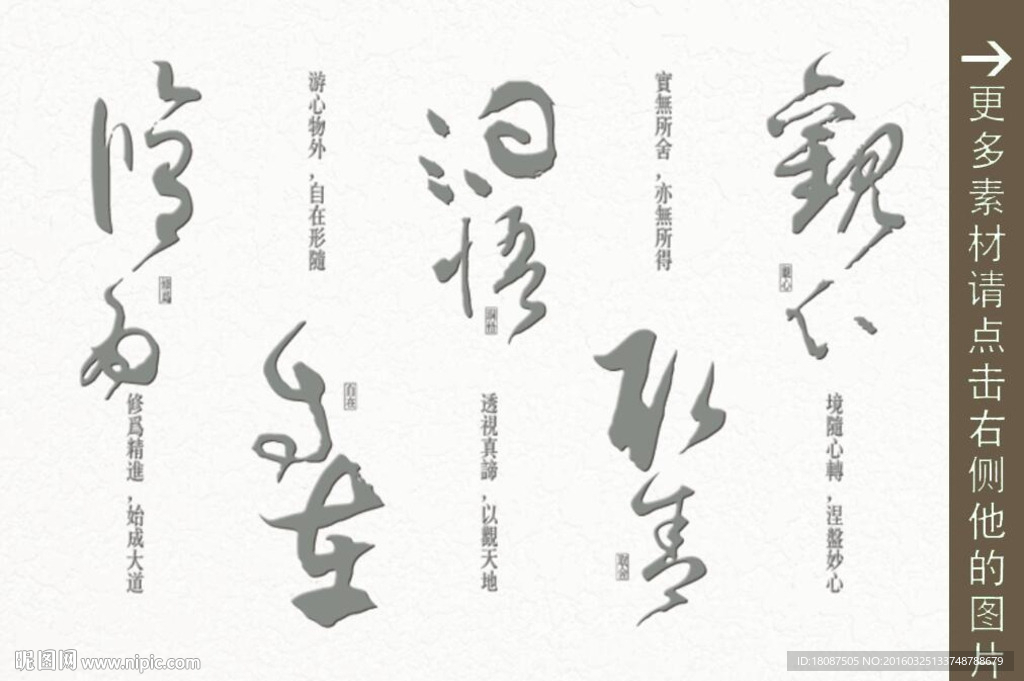 觀心
觀心
境隨心轉，涅盤妙心
實無所舍，亦無所得
取舍
取舍
洞悟
洞悟
透視真諦，以觀天地
游心物外，自在形隨
自在
自在
修爲
修爲
修爲精進，始成大道
→更多素材请点击右侧他的图片
昵图网 www.nipic.com
ID:18087505 NO:20160325133748788679